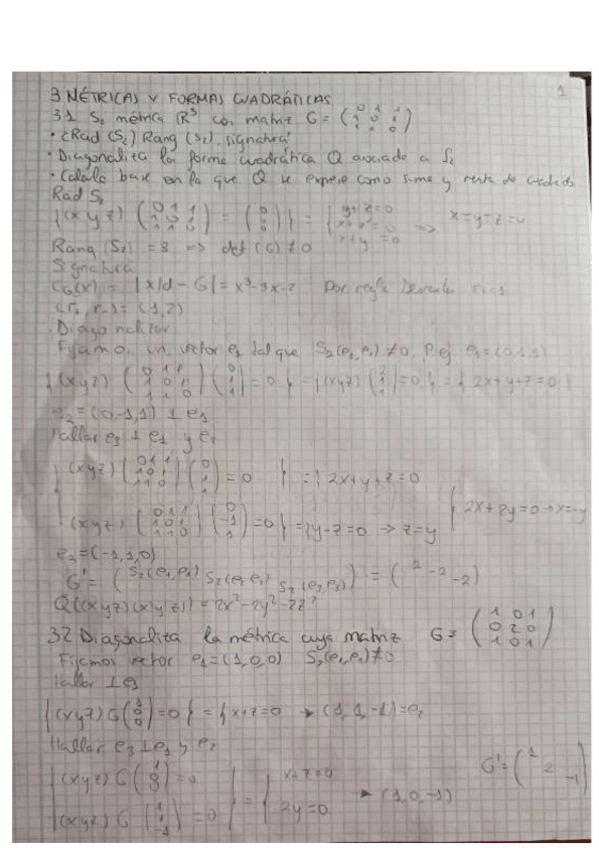 1
3 MÉTRICAS Y FORMAS CUADRÁTICAS
3.1 S₂ métrica R³ con matriz G = (0 1 1 / 1 0 1 / 1 1 0)
· ¿Rad (S₂) Rang (S₂), signatura?
· Diagonaliza la forma cuadrática Q asociada a S₂
· Calcula base en la que Q se exprese como suma y resta de cuadrados
Rad S₂
{(x y z) (0 1 1 / 1 0 1 / 1 1 0) = (0 / 0 / 0)} = {y+z=0 / x+z=0 / x+y=0 => x=y=z=0
Rang (S₂) = 3 => det (G) ≠ 0
Signatura
C_G(x) = |xId - G| = x³-3x-2 por regla Descartes r₊=1
(r₊, r₋) = (1,2)
· Diagonalizar
Fijamos un vector e₁ tal que S₂(e₁,e₁) ≠ 0. P.ej e₁=(0,1,1)
{(xyz) (0 1 1 / 1 0 1 / 1 1 0) (0 / 1 / 1) = 0} = {(xyz) (2 / 1 / 1) = 0} = {2x+y+z=0}
e₂ = (0,-1,1) ⊥ e₁
Hallar e₃ ⊥ e₁ y e₂
{(xyz) (0 1 1 / 1 0 1 / 1 1 0) (0 / 1 / 1) = 0 } = {2x+y+z=0
(xyz) (0 1 1 / 1 0 1 / 1 1 0) (0 / -1 / 1) = 0} = {y-z=0 → z=y {2x+2y=0 → x=-y
e₃=(-1,1,0)
G' = (S₂(e₁,e₁) S₂(e₂,e₂) S₂(e₃,e₃)) = (2 -2 -2)
Q((xyz)(x'y'z')) = 2x²-2y²-2z²
3.2 Diagonaliza la métrica cuya matriz G = (1 0 1 / 0 2 0 / 1 0 1)
Fijamos vector e₁=(1,0,0) S₂(e₁,e₁)≠0
Hallar ⊥ e₁
{(xyz) G (1 / 0 / 0) = 0} = {x+z=0 → (1,1,-1)=e₂
Hallar e₃ ⊥ e₁ y e₂
{(xyz) G (1 / 0 / 0) = 0
(xyz) G (1 / 1 / -1) = 0} = {x+z=0 / 2y=0 → (1,0,-1)
G' = (1 2 -1)